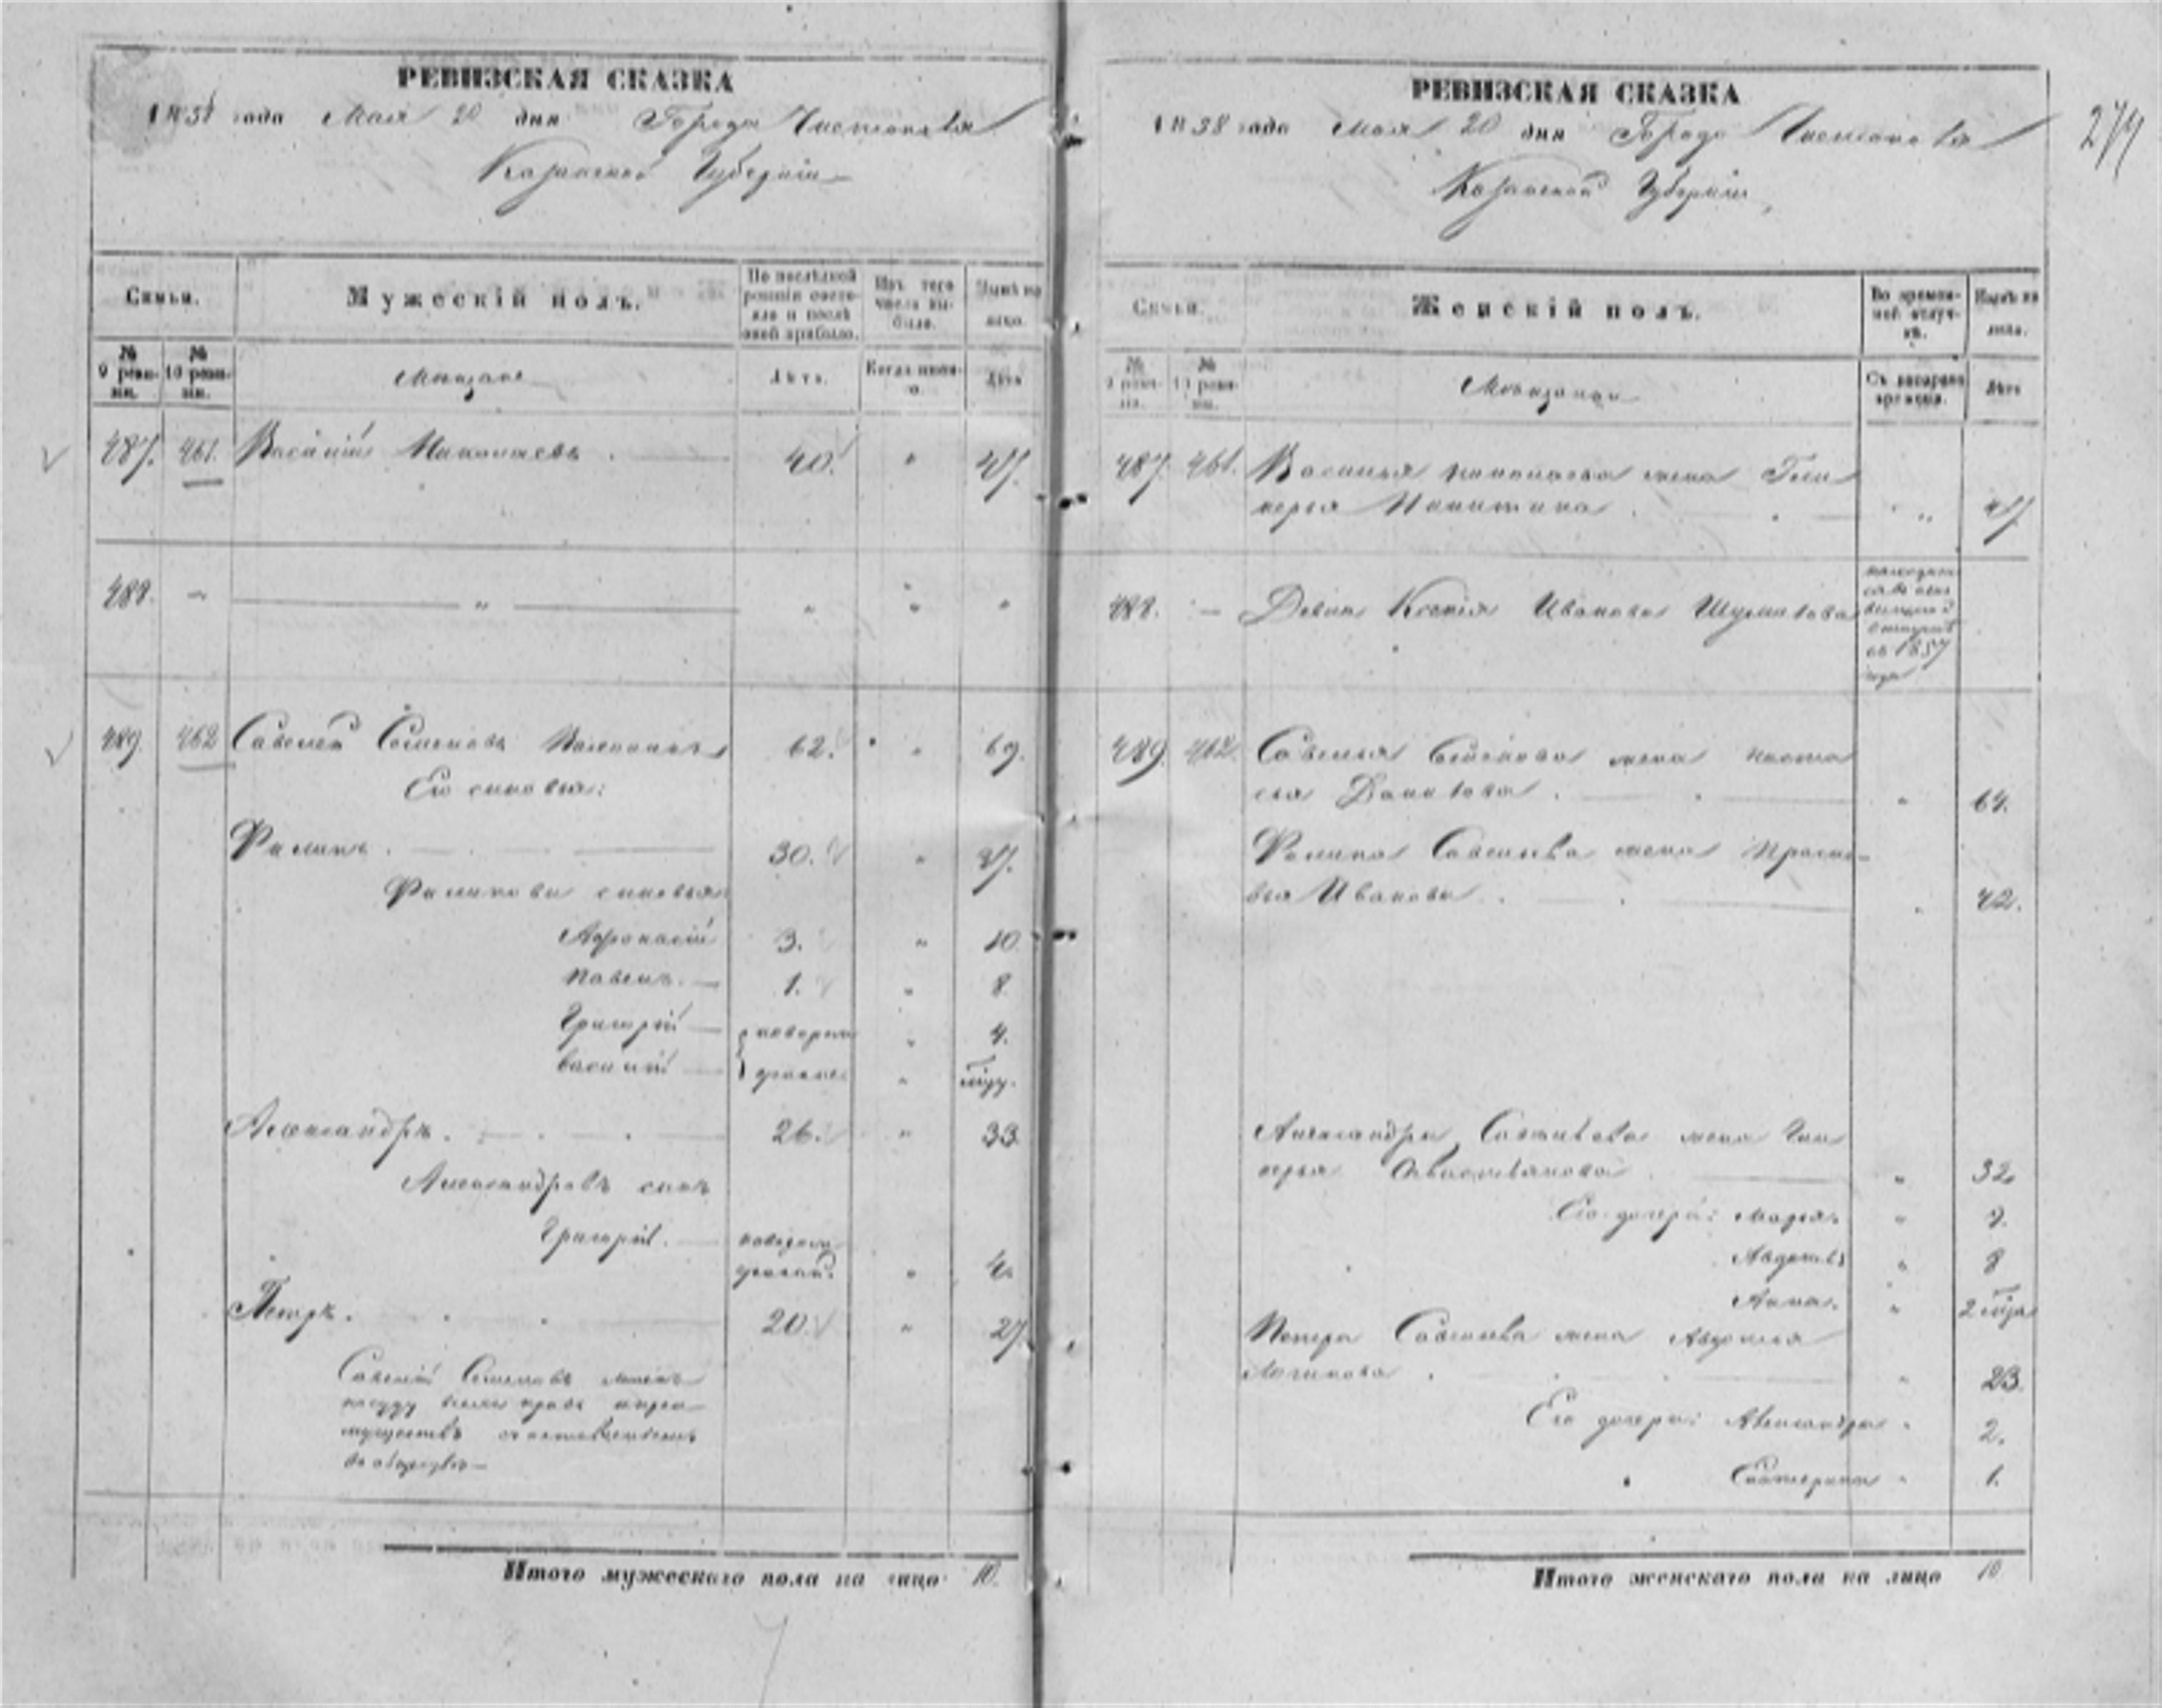 РЕВИЗСКАЯ СКАЗКА
1858 года Мая 20 дня Города Чистополя
Казанской Губерніи
Семьи.
Мужескій полъ.
По послѣдней ревизіи состояло и послѣ оной прибыло.
Изъ того числа выбыло.
Нынѣ на лицо.
№ 9 ревизіи.
№ 10 ревизіи.
Мѣщане
Лѣта.
Когда именно.
Лѣта
487. 461. Василій Николаевъ 40. " 47.
488. - " " " "
489. 462 Савелій Семеновъ 62. " 69.
Его сыновья:
Филипъ. 30. " 37.
Филиповы сыновья
Афонасій 3. " 10.
Павелъ. 1. " 8
Григорій " 4.
Василій "
новорожденные
Александръ. 26. " 33.
Александровъ сынъ
Григорій. новорожденный. " 4.
Петръ. 20. " 27
Савелій Семеновъ
Итого мужескаго пола на лицо 10.
РЕВИЗСКАЯ СКАЗКА
1858 года Мая 20 дня Города Чистополя
Казанской Губерніи
274
Семьи.
Женскій полъ.
Во временной отлучкѣ.
Нынѣ на лицо.
№ 9 ревизіи.
№ 10 ревизіи.
Мѣщанки
Съ котораго времени.
Лѣта
487. 461. Василья Николаева жена Гли
керья Никитина " 47
488. - Девка Ксенія Иванова
съ 1857 года
489. 462. Савелья Семенова жена Наста
сья " 64.
Филипа Савельева жена Праско-
вья Иванова " 42.
Александра Савельева жена Гли
керья " 32.
Его дочери: Марья. "
Авдотья " 8
Анна. " 2
Петра Савельева жена Авдотья
Логинова " 23.
Его дочери: Александра " 2.
Екатерина " 1.
Итого женскаго пола на лицо 10